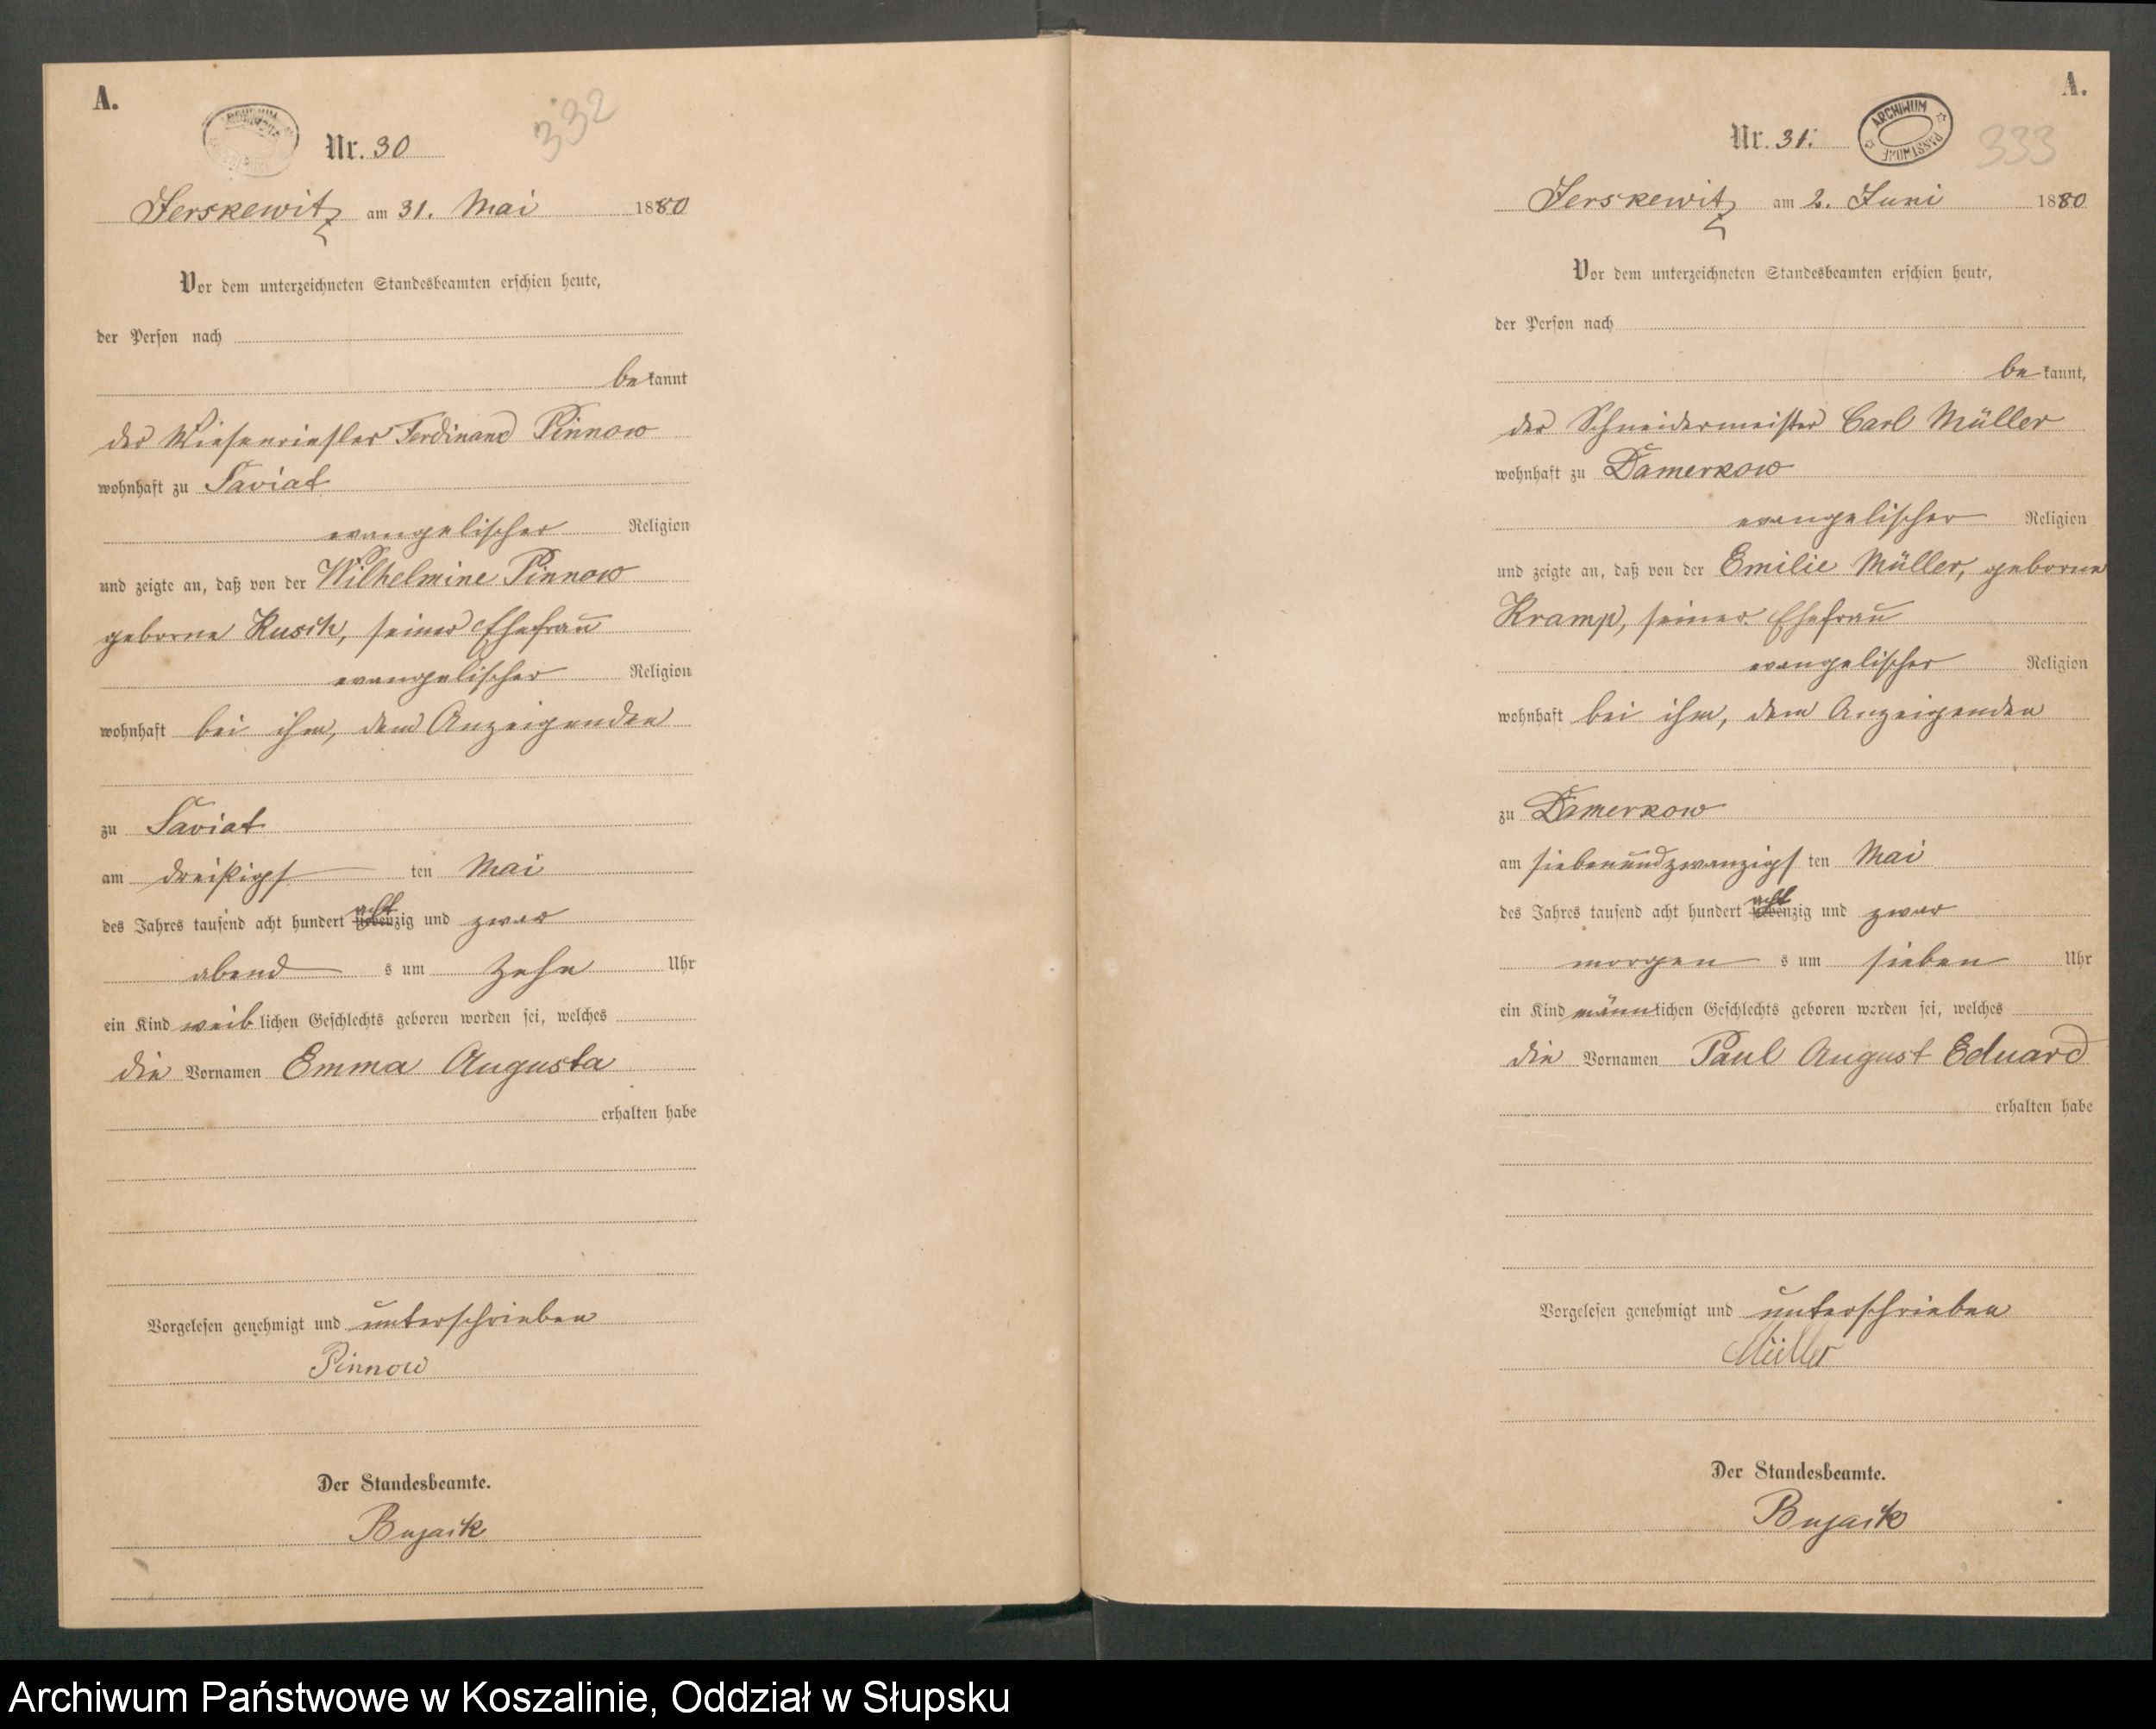 A.
332
Nr. 30
Jerskewitz am 31. Mai 1880
Vor dem unterzeichneten Standesbeamten erschien heute,
der Person nach
bekannt
der Wiesenriesler Ferdinand Pinnow
wohnhaft zu Saviat
evangelischer Religion
und zeigte an, daß von der Wilhelmine Pinnow
geborne Kusch, seiner Ehefrau
evangelischer Religion
wohnhaft bei ihm, dem Anzeigenden
zu Saviat
am dreißigs ten Mai
des Jahres tausend acht hundert achtzig und zwar
abend s um zehn Uhr
ein Kind weiblichen Geschlechts geboren worden sei, welches
die Vornamen Emma Augusta
erhalten habe
Vorgelesen genehmigt und unterschrieben
Pinnow
Der Standesbeamte.
A.
ARCHIWUM PAŃSTWOWE
333
Nr. 31.
Jerskewitz am 2. Juni 1880
Vor dem unterzeichneten Standesbeamten erschien heute,
der Person nach
bekannt,
der Schneidermeister Carl Müller
wohnhaft zu Damerkow
evangelischer Religion
und zeigte an, daß von der Emilie Müller, geborne
Kramp, seiner Ehefrau
evangelischer Religion
wohnhaft bei ihm, dem Anzeigenden
zu Damerkow
am siebenundzwanzigs ten Mai
des Jahres tausend acht hundert achtzig und zwar
morgen s um sieben Uhr
ein Kind männlichen Geschlechts geboren worden sei, welches
die Vornamen Paul August Eduard
erhalten habe
Vorgelesen genehmigt und unterschrieben
Müller
Der Standesbeamte.
Archiwum Państwowe w Koszalinie, Oddział w Słupsku